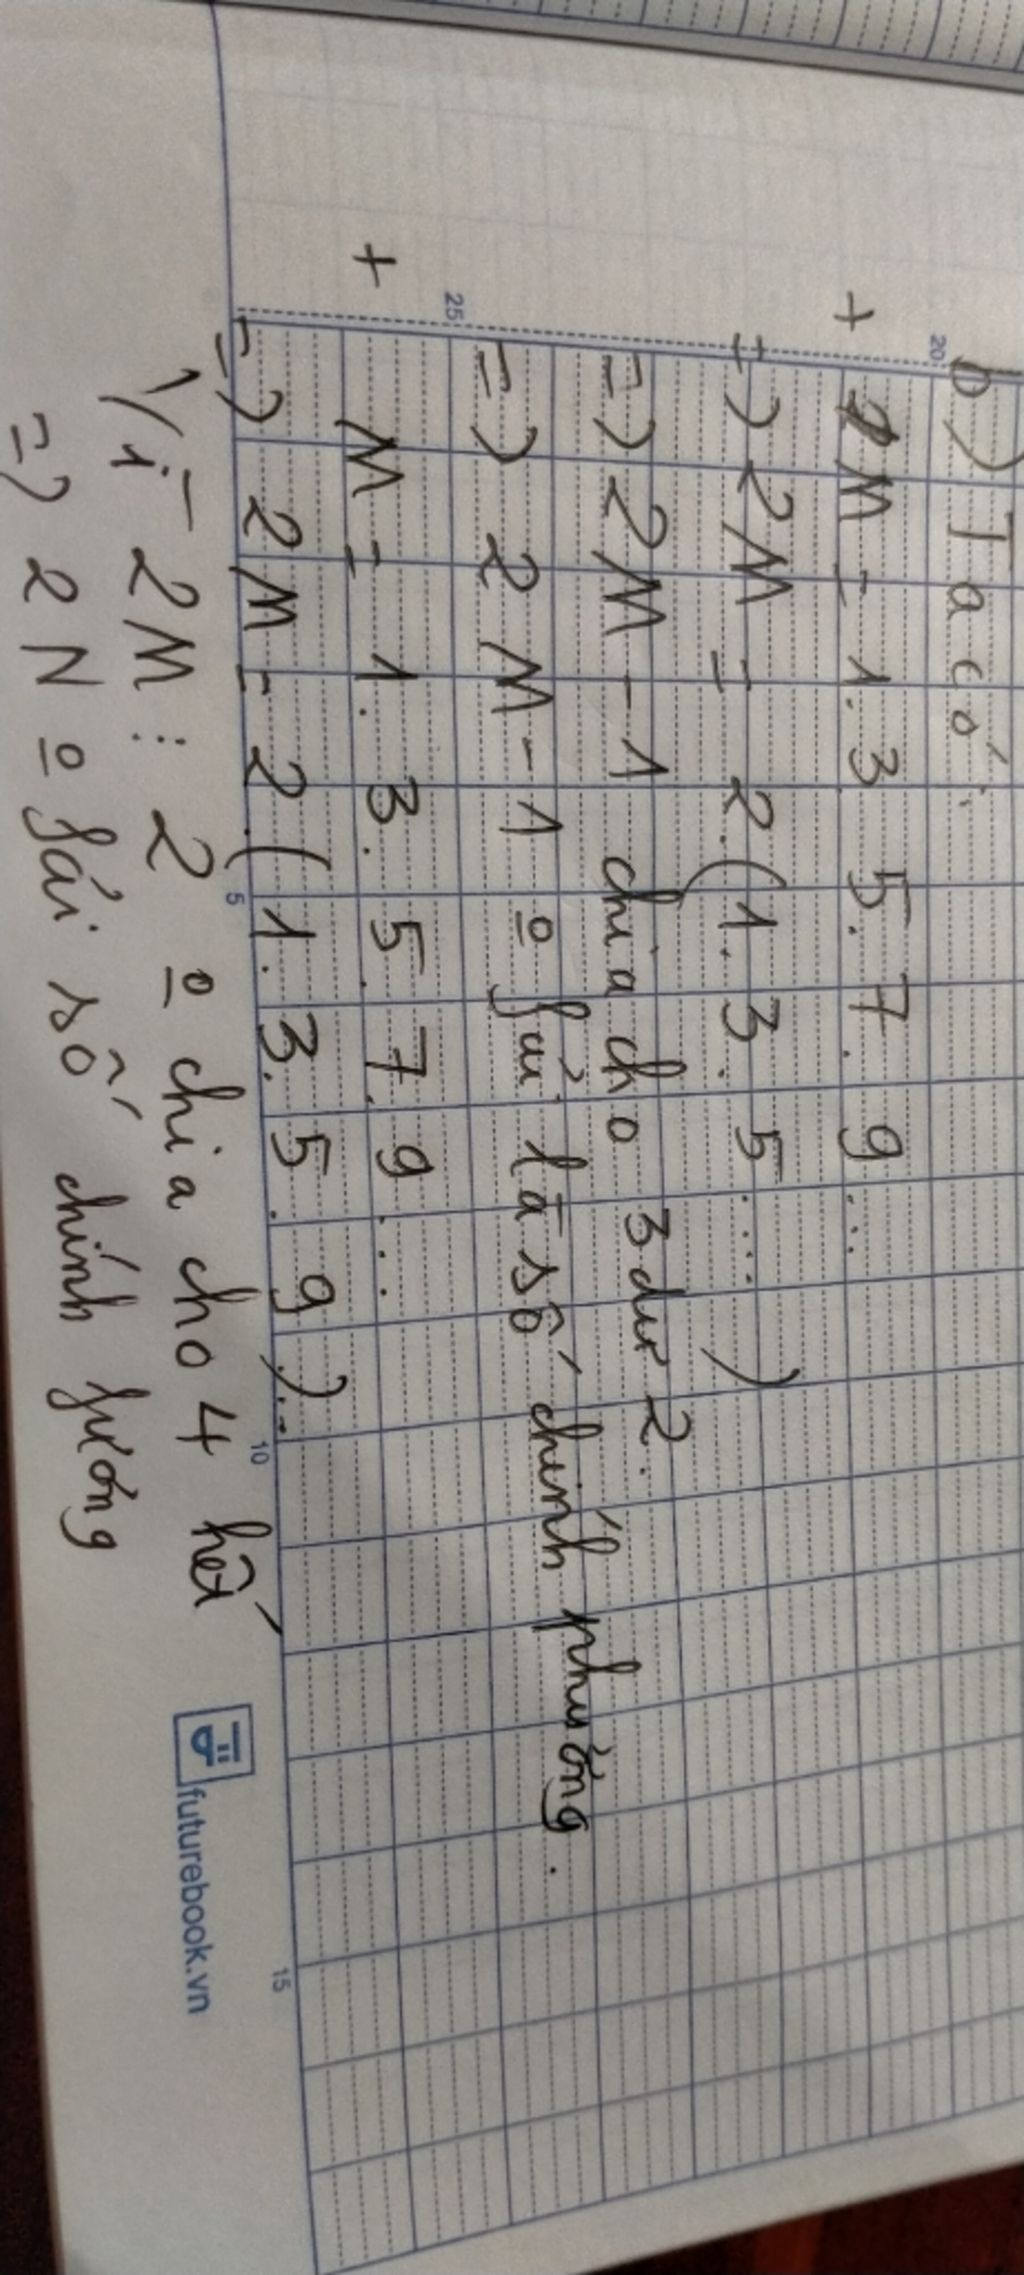 20
b) Ta có:
+ M = 1.3 5.7.9...
=) 2M = 2.(1.3.5...)
=) 2M - 1 chia cho 3 dư 2.
25
=) 2M - 1 o fải là số chính phương.
+ M = 1.3.5.7.9...
=) 2M = 2.(1.3.5.9.)...
5
10
15
Vì 2M ⋮ 2 o chia cho 4 hết
=) 2N o fải số chính fương
futurebook.vn